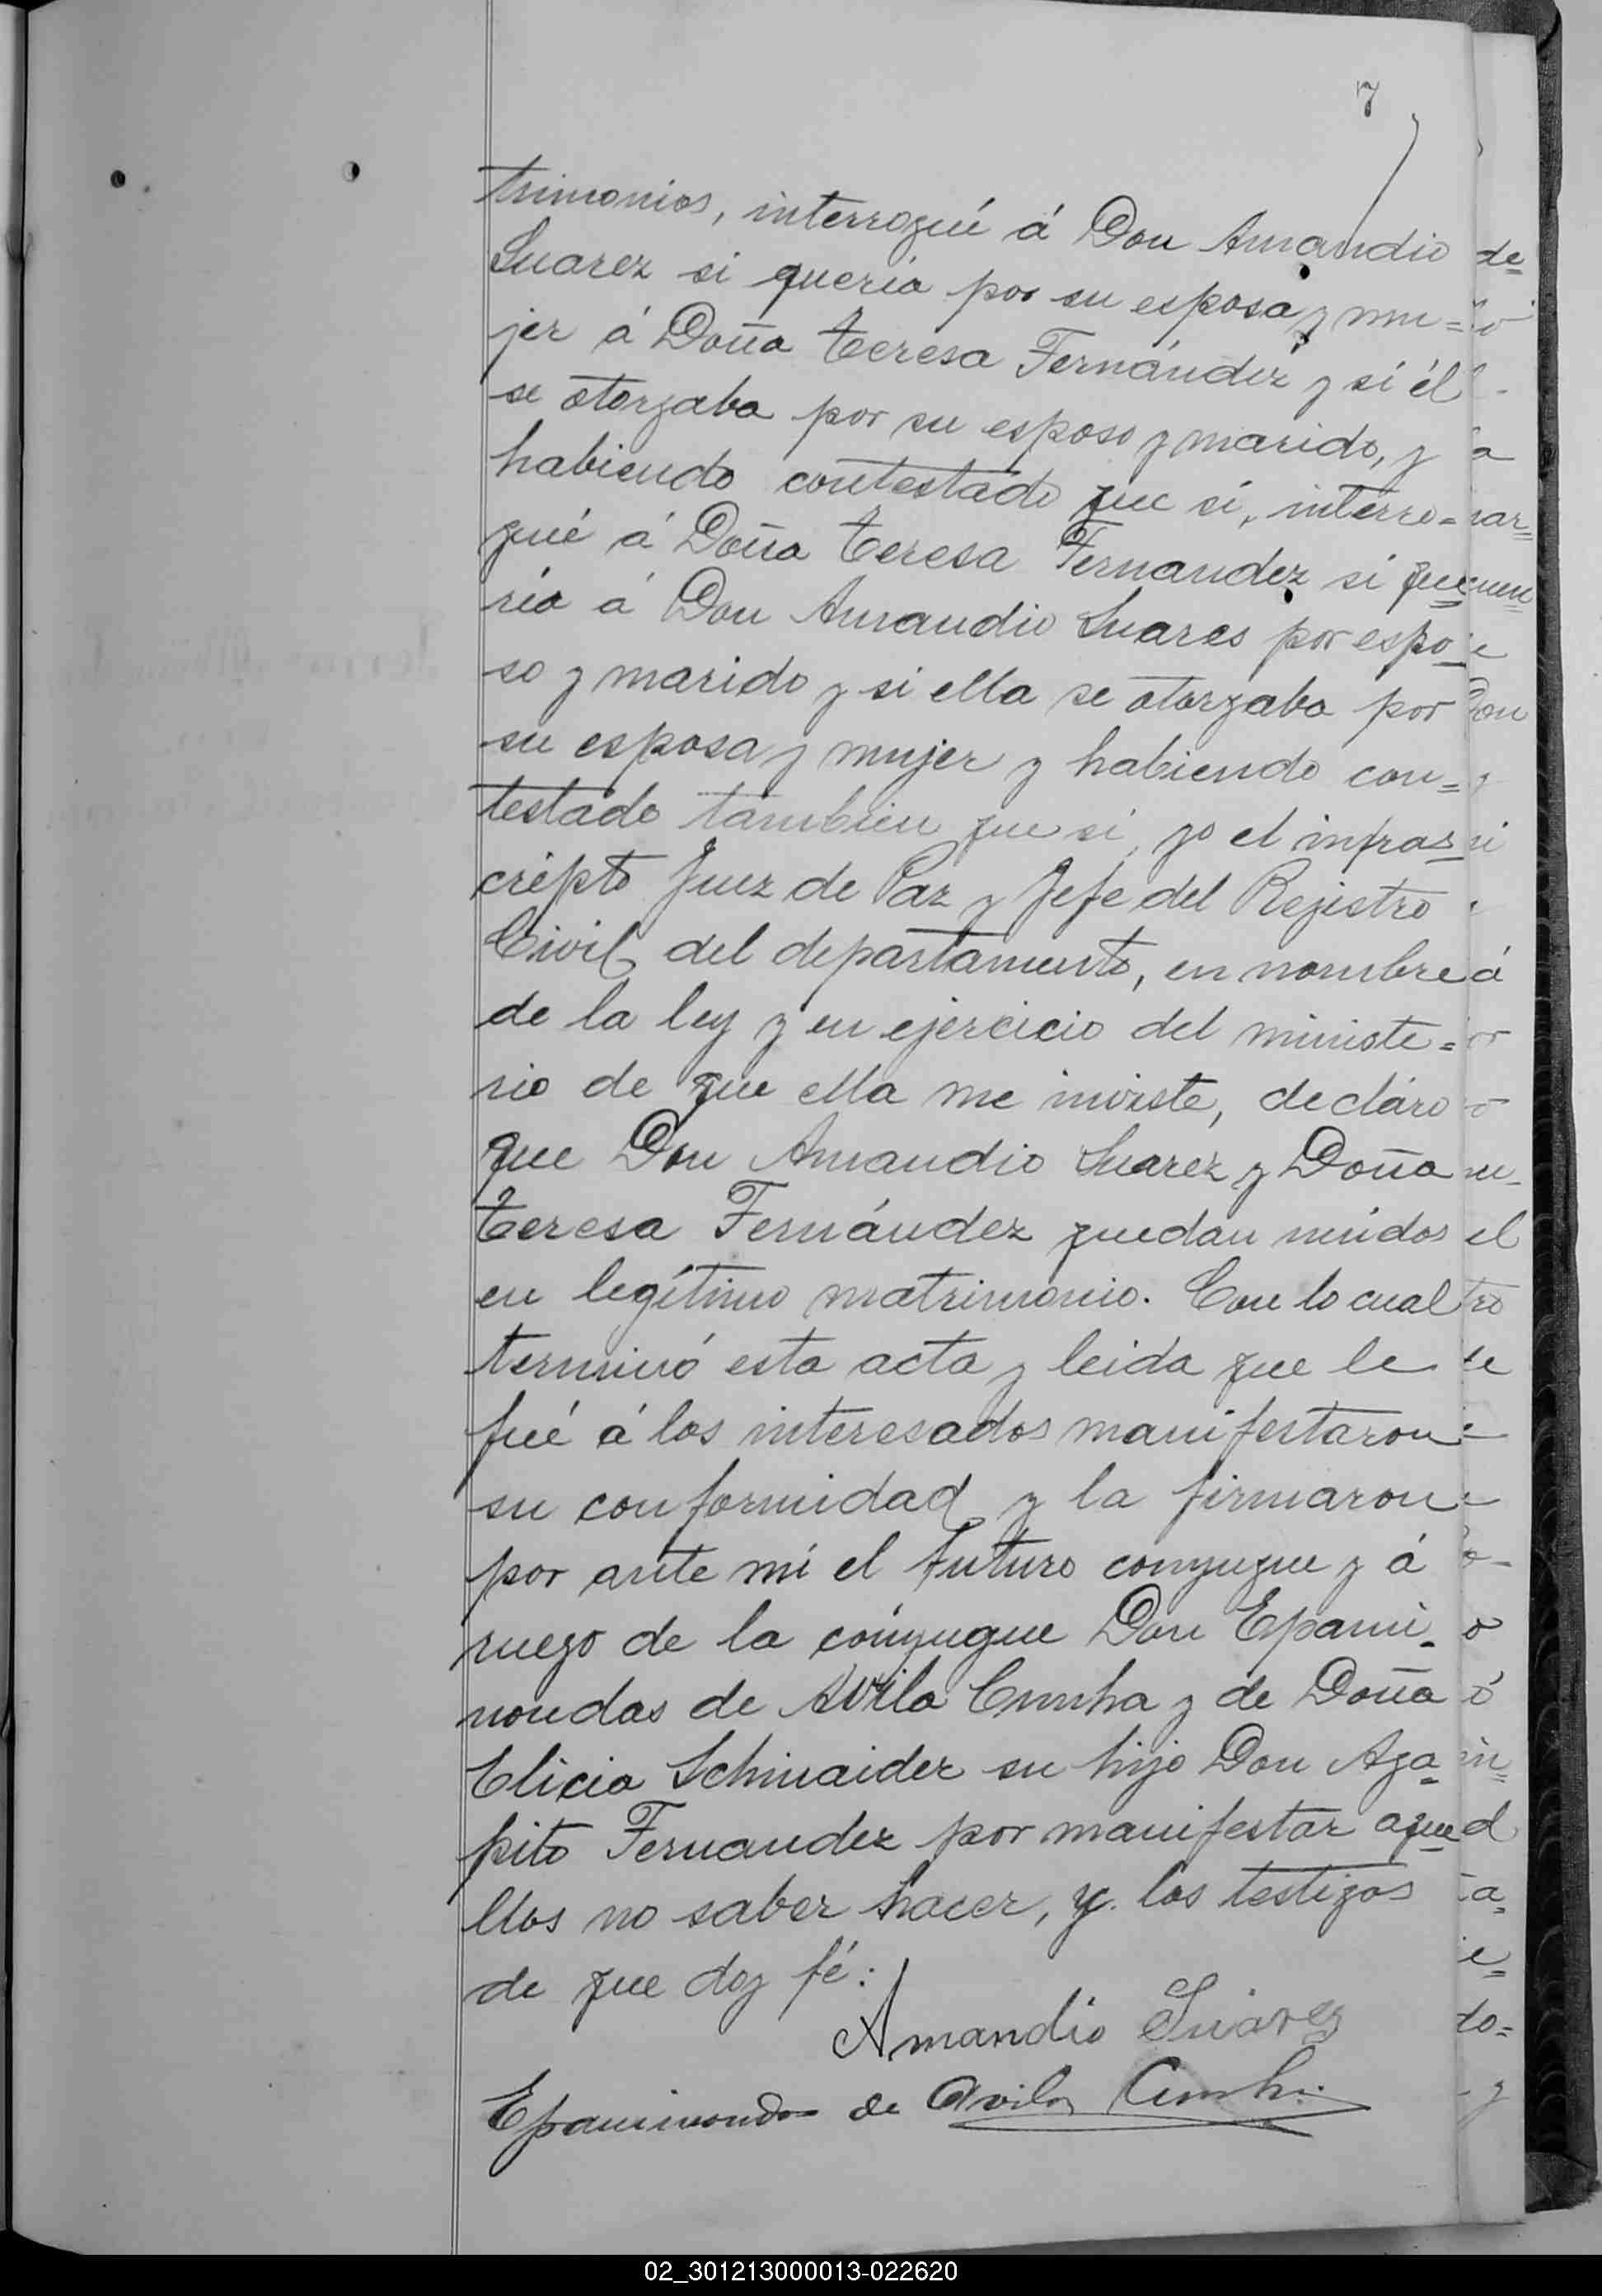 7
trimonios, interrogué á Don Amandio
Suarez si quería por su esposa y mu=
jer á Doña Teresa Fernández y si él
se otorgaba por su esposo y marido, y
habiendo contestado que sí, interro=
gué á Doña Teresa Fernandez si que=
ría á Don Amandio Suares por espo=
so y marido y si ella se otorgaba por
su esposa y mujer y habiendo con=
testado tambien que si, yo el infras=
cripto Juez de Paz y Jefe del Rejistro
Civil del departamento, en nombre
de la ley y en ejercicio del ministe=
rio de que ella me inviste, declaro
que Don Amandio Suarez y Doña
Teresa Fernández quedan unidos
en legítimo matrimonio. Con lo cual
terminó esta acta y leida que le
fué á los interesados manifestaron
su conformidad y la firmaron
por ante mí el futuro conyugue y á
ruego de la cónyugue Don Epami-
nondas de Avila Cunha y de Doña
Elicia Schinaider su hijo Don Aga=
pito Fernandez por manifestar aque=
llos no saber hacer, y los testigos
de que doy fé:
Amandio Suarez
Epaminondas de Avila Cunha
02_301213000013-022620